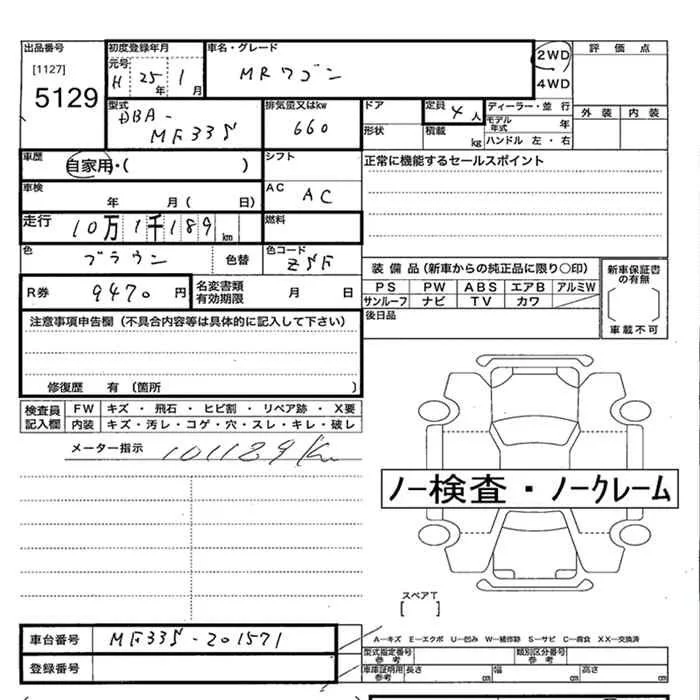 出品番号 初度登録年月 車名・グレード 2WD 評価点
[1127] 元号 H 25年 1月 MRワゴン 4WD
5129 型式 DBA-MF33S 排気量又はkw 660 ドア 定員 4人 ディーラー・並行 外装 内装
形状 積載 kg モデル年式 年
ハンドル 左・右
車歴 自家用・( ) シフト 正常に機能するセールスポイント
車検 年 月( 日) AC AC
走行 10万1千189km 燃料
色 ブラウン 色替 色コード Z5F
装備品(新車からの純正品に限り〇印) 新車保証書の有無
R券 9470円 名変書類有効期限 月 日 PS PW ABS エアB アルミW
サンルーフ ナビ TV カワ 車載不可
注意事項申告欄(不具合内容等は具体的に記入して下さい) 後日品
修復歴 有(箇所 )
検査員記入欄 FW キズ・飛石・ヒビ割・リペア跡・X要
内装 キズ・汚レ・コゲ・穴・スレ・キレ・破レ
メーター指示 101189Km
ノー検査・ノークレーム
スペアT
[ ]
車台番号 MF33S-201571 A―キズ E―エクボ U―凹み W―補修跡 S―サビ C―腐食 XX―交換済
型式指定番号 参考 類別区分番号 参考
登録番号 車庫証明用参考 長さ cm 幅 cm 高さ cm